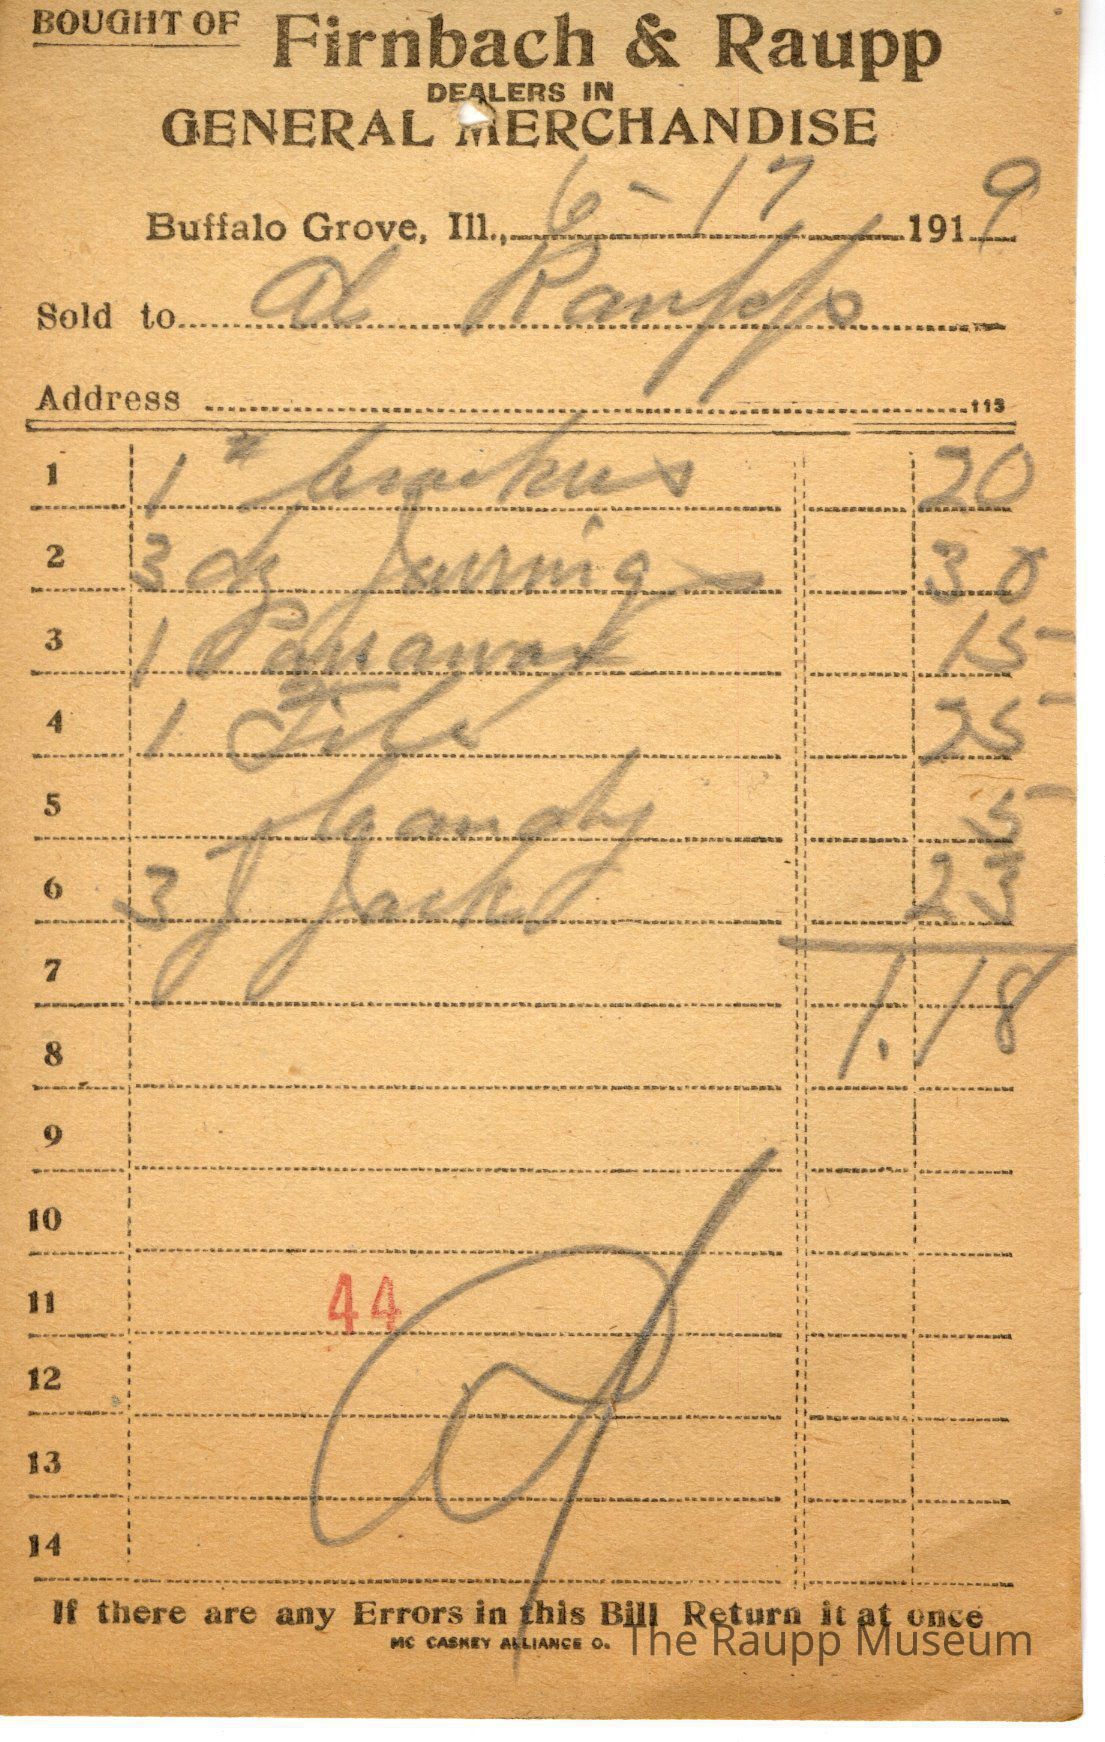 BOUGHT OF Firnbach & Raupp
DEALERS IN
GENERAL MERCHANDISE
Buffalo Grove, Ill., 6-17 1919
Sold to Al Raupp
Address
113
1 1 # 20
2 3 dz 30
3 1 Parawax 15
4 1 25
5 Candy 5
6 3 23
7 1.18
8
9
10
11 44
12
13
14
If there are any Errors in this Bill Return it at once
MC CASKEY ALLIANCE O.
The Raupp Museum